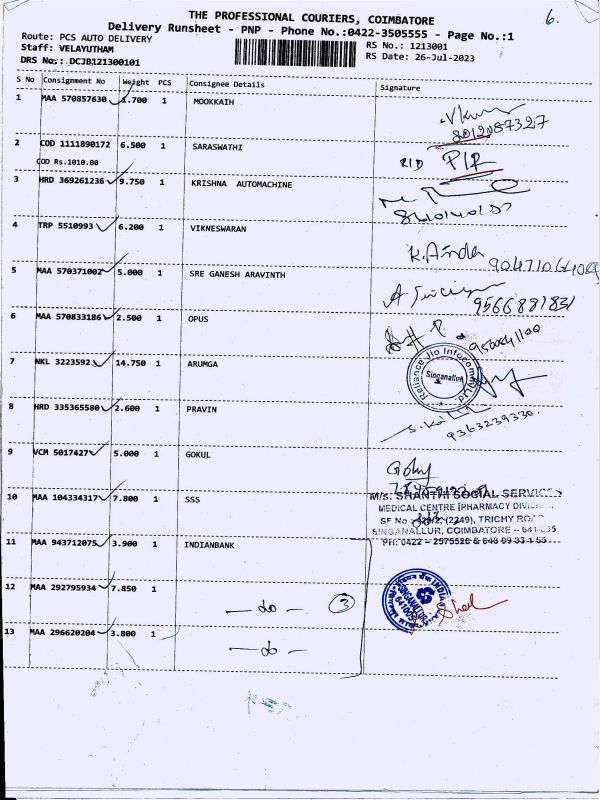 THE PROFESSIONAL COURIERS, COIMBATORE
6.
Delivery Runsheet - PNP - Phone No.:0422-3505555 - Page No.:1
Route: PCS AUTO DELIVERY
RS No.: 1213001
Staff: VELAYUTHAM
RS Date: 26-Jul-2023
DRS No.: DCJB121300101
S No Consignment No Weight PCS Consignee Details Signature
1 MAA 570857630 1.700 1 MOOKKAIH
8012087327
2 COD 1111890172 6.500 1 SARASWATHI
COD Rs.1010.00
RID
3 HRD 369261236 9.750 1 KRISHNA AUTOMACHINE
4 TRP 5510993 6.200 1 VIKNESWARAN
5 MAA 570371002 5.000 1 SRE GANESH ARAVINTH
9566881831
6 MAA 570833186 2.500 1 OPUS
7 NKL 3223592 14.750 1 ARUMGA
Reliance Jio Infocomm Ltd
Singanallur
8 HRD 335365580 2.600 1 PRAVIN
9363239330
9 VCM 5017427 5.000 1 GOKUL
10 MAA 104334317 7.800 1 SSS
M/s. SHANTHI SOCIAL SERVIC
MEDICAL CENTRE [PHARMACY DIVI
(2249), TRICHY ROA
SINGANALLUR, COIMBATORE - 641
11 MAA 943712075 3.900 1 INDIANBANK
12 MAA 292795934 7.850 1
— do —
3
13 MAA 296620204 3.800 1
— do —